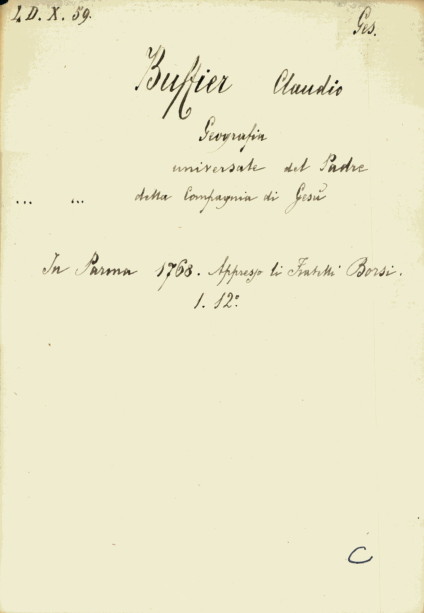 1, D. X. 59.
Ges.
Buffier Claudio
Geografia
universale del Padre
... ... della Compagnia di Gesù
In Parma 1768. Appresso li Fratelli Borsi.
1. 12°.
C